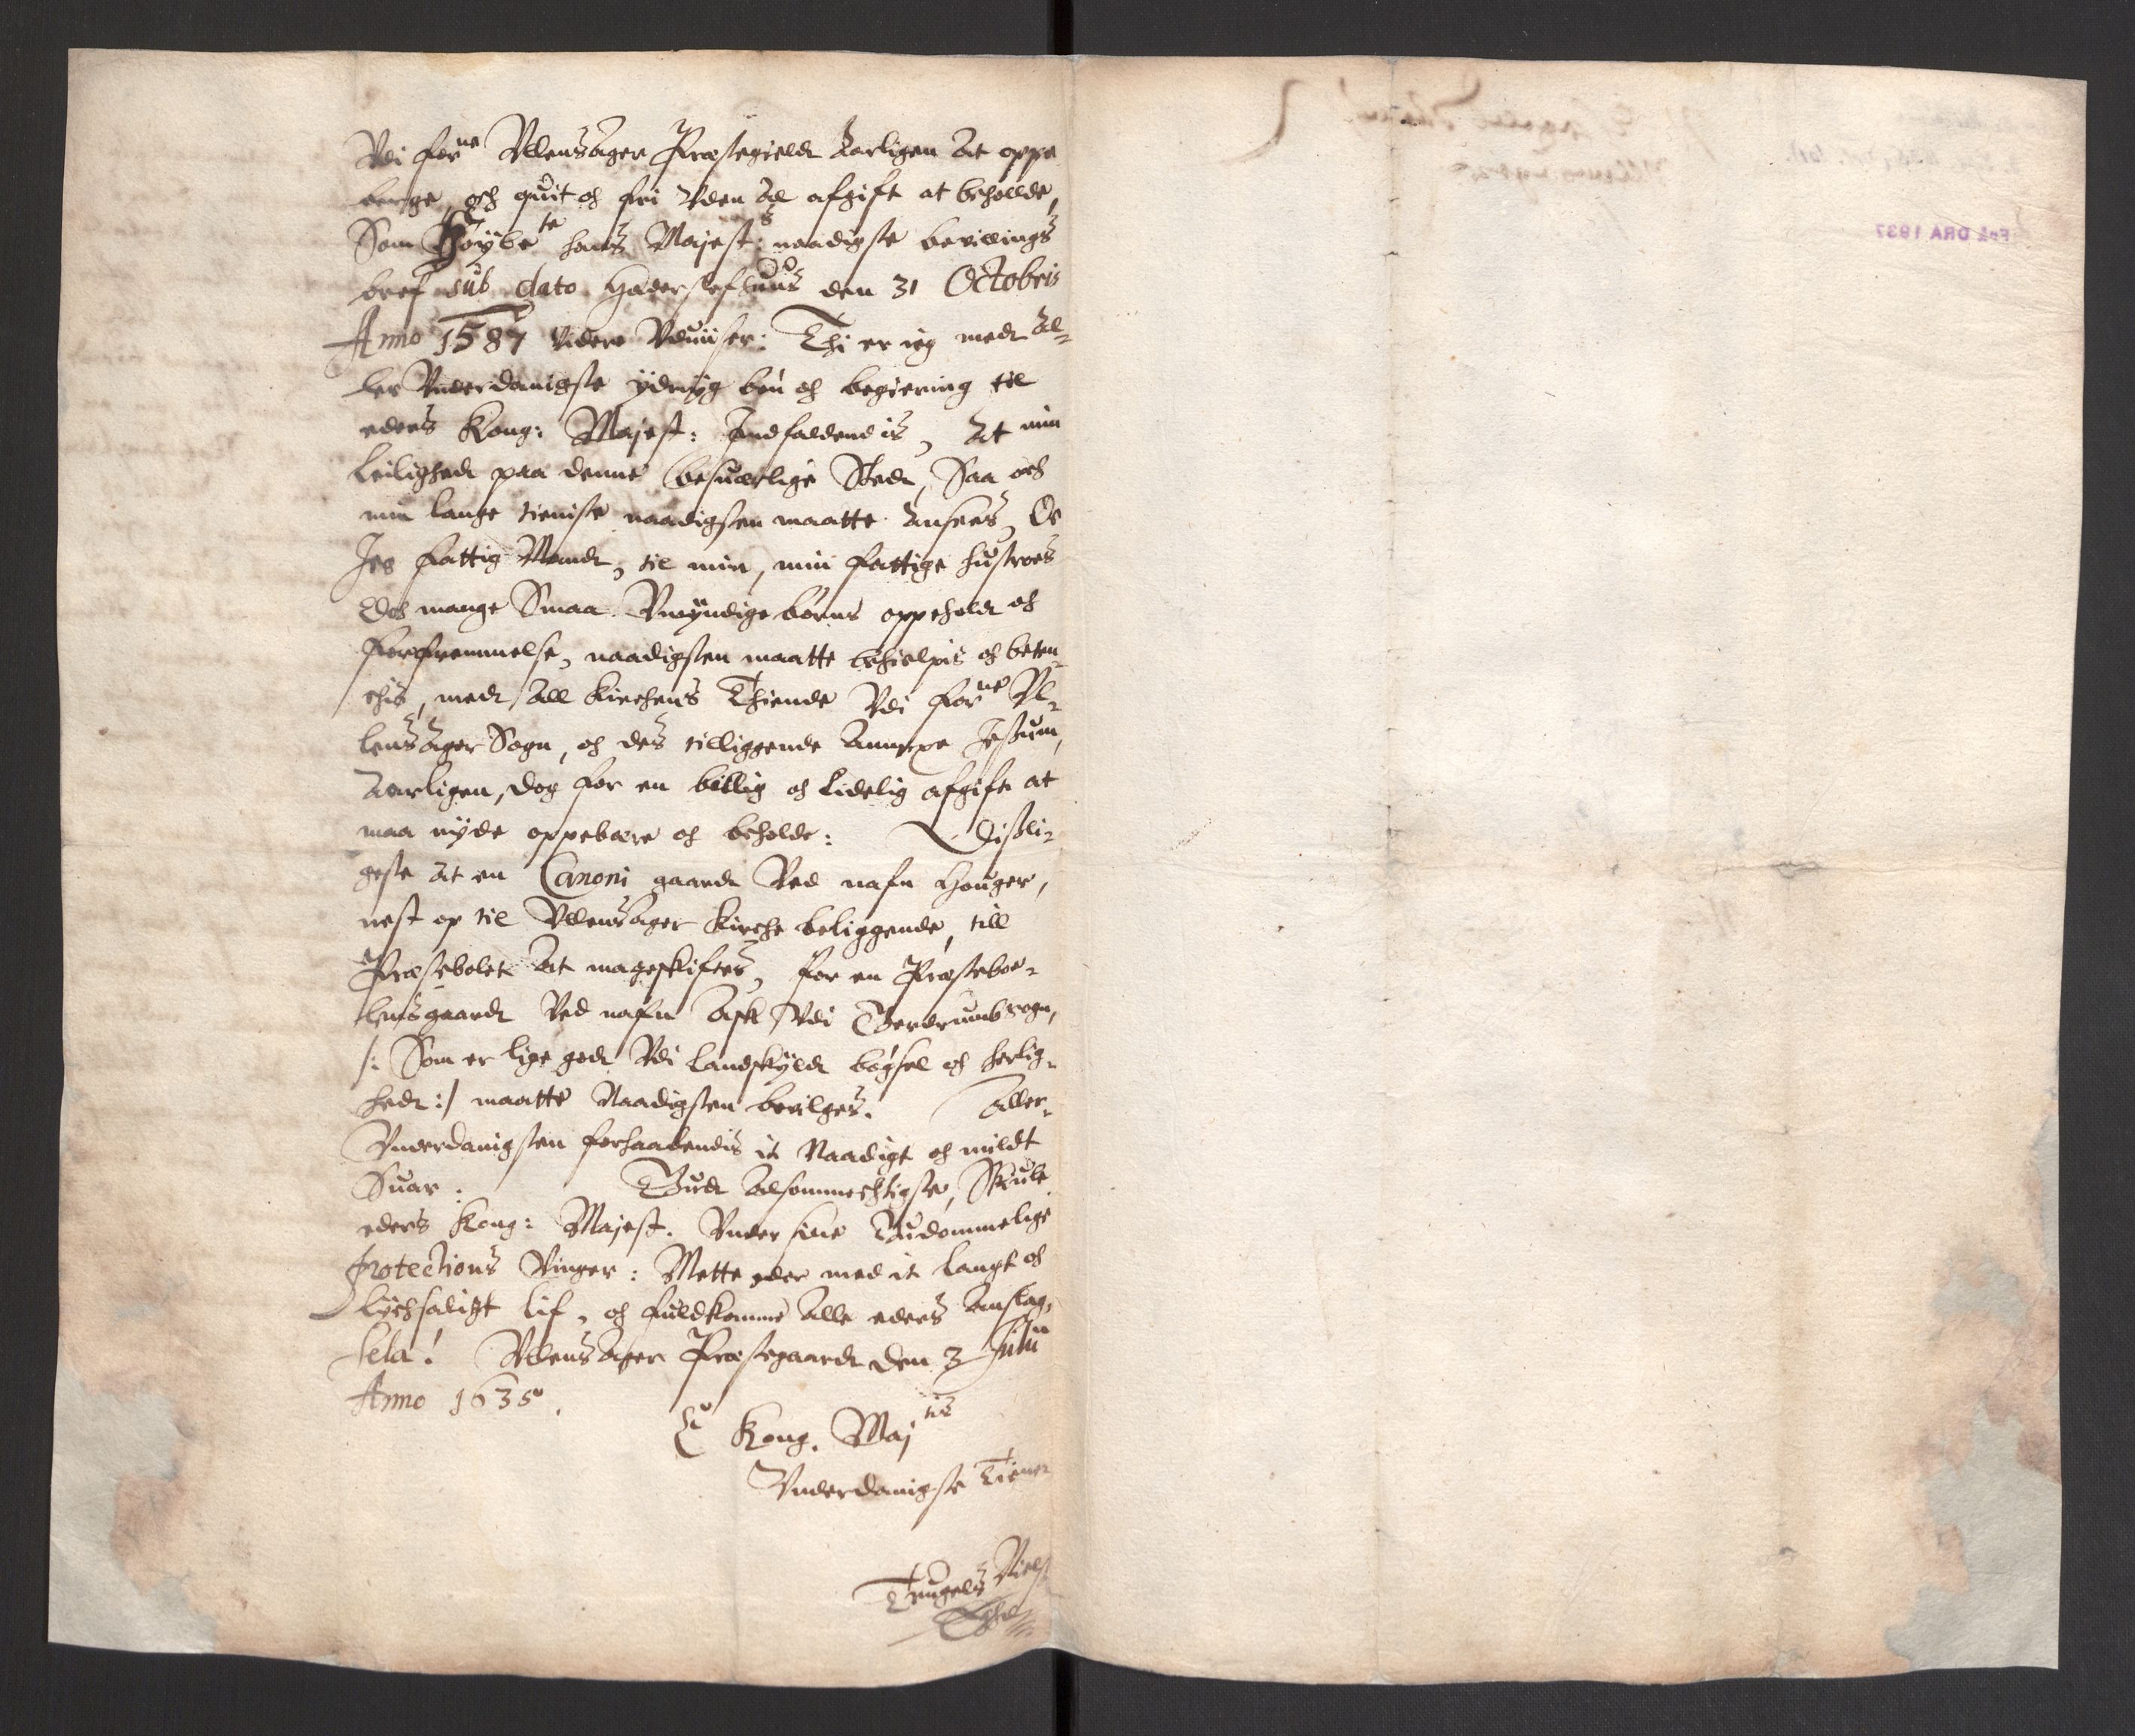 Vdi forne Vllensager Præstegieldt Aarligen At oppe
berge, och quit oc fri Vden Al afgift at beholde,
Som Høÿbete hans Majests: naadigste bevillings
bref sub dato Haderslefhuus den 31 Octobris
Anno 1587 Videre Vduiiser: Thi er ieg medt Al-
ler Vnderdanigste ÿdmÿg bøn oc begiering til
eders Kong: Majest: Indfaldendis, At min
Leilighedt paa denne besuærlige Stedt, Saa och
min lange tieniste naadigsten maatte Ansees, Oc
Jeg fattig Mandt, til min, min fattige hustroes
Och mange Smaa Vmÿndige børns oppeholdt oc
forfremmelse, naadigsten maatte behielpis oc beten-
chis, medt All Kirchens Thiende Vdi forne Vl-
lensager Sogn, oc des tilliggende Annexe Jeßum,
Aarligen, dog for en billig oc Lidelig afgift at
maa nÿde oppebære oc beholde: Dißli-
geste At en Canoni gaardt Ved nafn Houger,
nest op til Vllensager Kirche beliggende, till
Præstebolet At mageskiftes, for en Præsteboe-
lensgaardt Ved nafn Ask Vdi Gierdrumb sogn,
/: Som er lige godt Vdi landskÿldt bøgsel oc herlig-
hedt :/ maatte Naadigsten bevilges. Aller-
Vnderdanigsten forhaabendis it Naadigt oc mildt
Suar: Gudt Alsommechtigste, Skiule
eders Kong: Majest. Vnder sine Gudommelige
Protections Vinger: Mette eder med it langt oc
lÿchsaligt lif, oc fuldkomme Alle eders Anslag,
Sela! Vllensager Præstegaardt den 3 Julii
Anno 1635.
E Kong. Majtis
Vnderdanigste Tiener
Trugels Niels